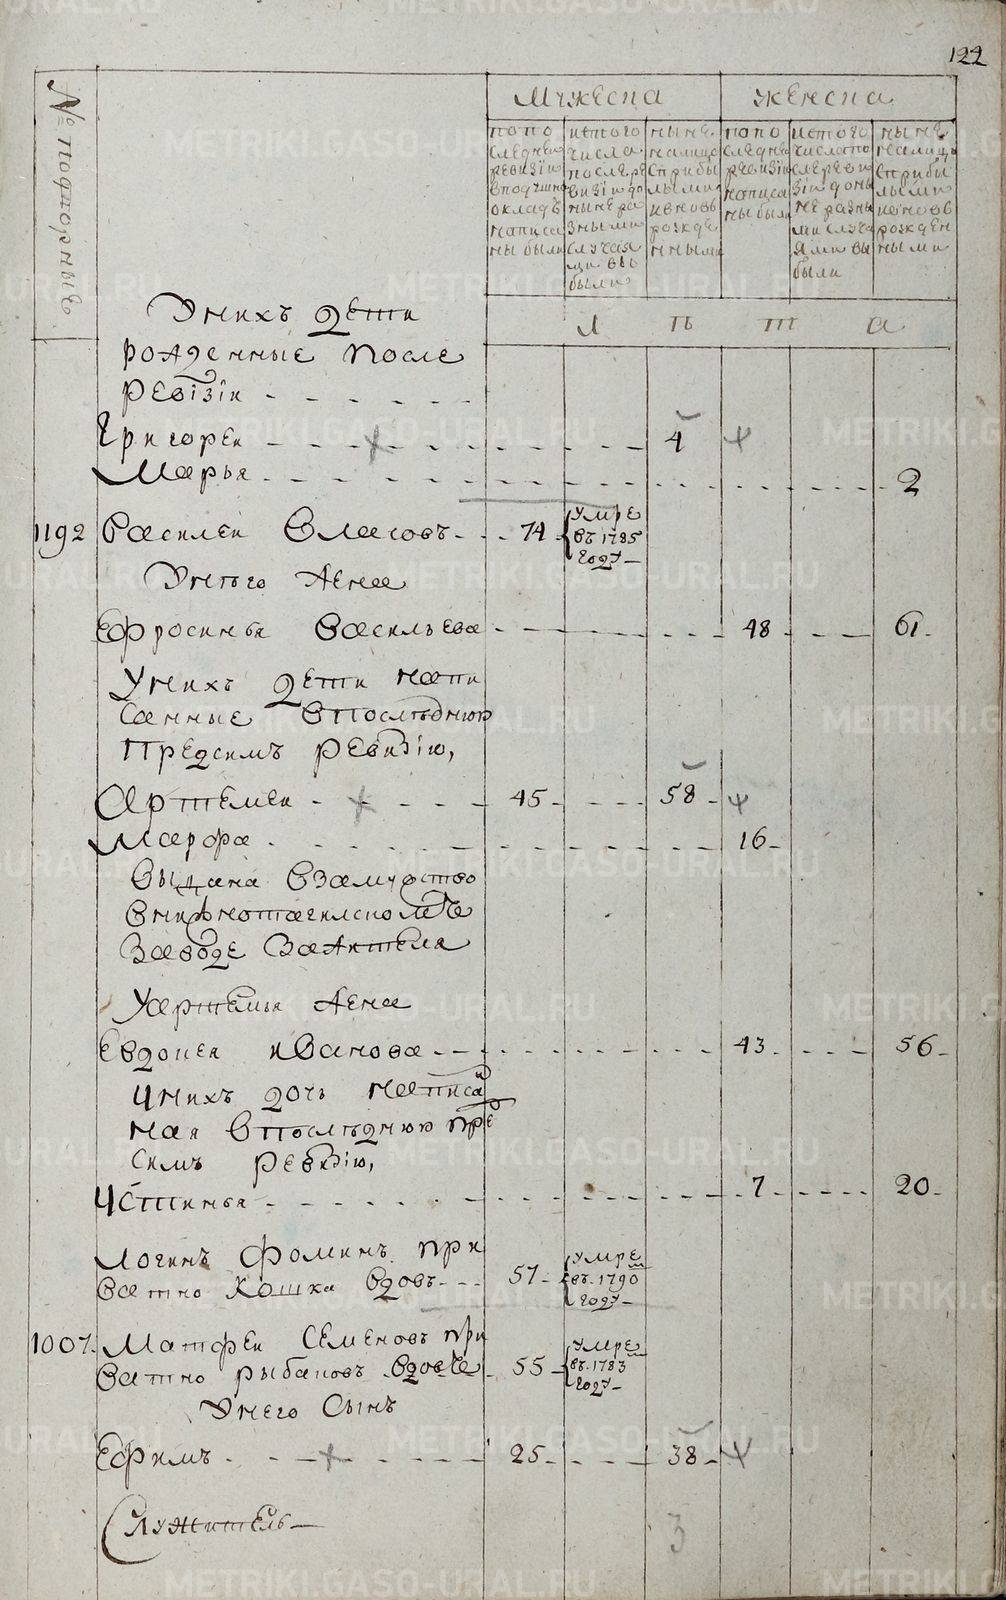 122
№ подворные
Мужеска
Женска
по по
следней
ревизiи
в подушно
окладъ
написа
ны были
из того
числа
после ре
визiи до
ныне ра
зными
случая
ми вы
были
ныне
налицо
с прибы
лыми
и вновь
рожде
нными
по по
следней
ревизiи
написа
ны были
из того
числа по
сле реви
зiи доны
не разны
ми случа
ями вы
были
ныне
налицо
с прибы
лыми
и вновь
рожден
ными
Л ѣ т а
У них детi
рожденные после
ревiзiи
Григореи 4
Марья 2
1192 Василеи Власовъ 74 умре
въ 1785
году
У него жена
Ефросинья Васильева 48 61
У них дети напи
санные в последнюю
предсимъ ревизiю,
Артемеи 45 58
Марфа 16
выдана в замужство
в нижнотагилскомъ
заводе за жителя
У Артемья жена
Евдокея Иванова 43 56
У них дочь написа
ная в последнюю пре
симъ ревизiю,
Устинья 7 20
Логинъ Фоминъ при
ватно Кошка вдовъ 57 умре
въ 1790
году
1007 Матфеи Семеновъ при
ватно Рыбаковъ вдовъ 55 умре
въ 1783
году
У него сынъ
Ефимъ 25 38
Служитель
3
METRIKI.GASO-URAL.RU